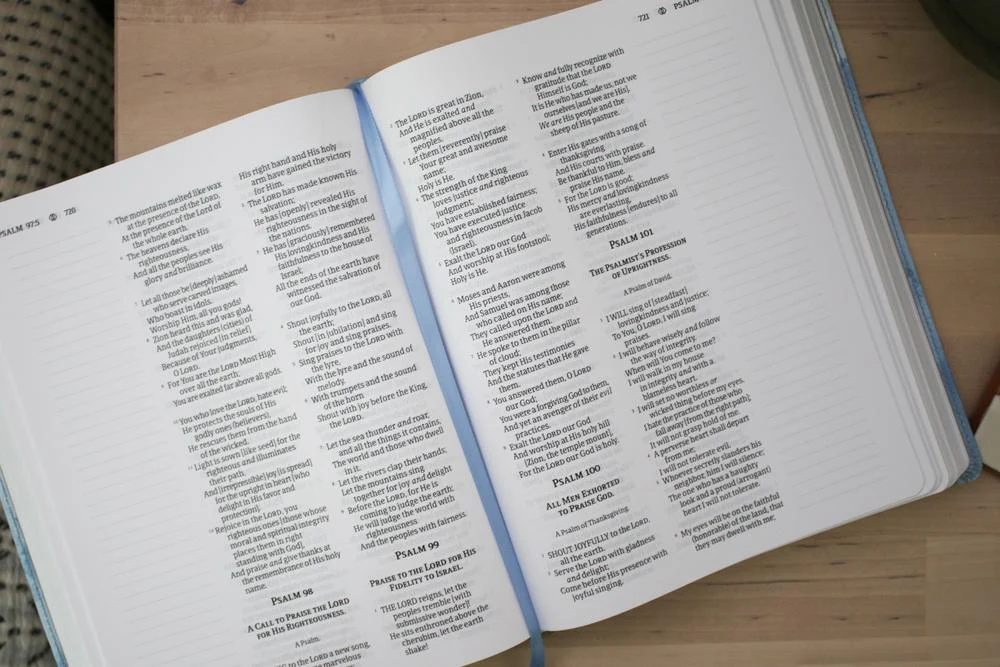 PSALM 97:5 720
5 The mountains melted like wax
at the presence of the LORD,
At the presence of the Lord of
the whole earth.
6 The heavens declare His
righteousness,
And all the peoples see His
glory and brilliance.
7 Let all those be [deeply] ashamed
who serve carved images,
Who boast in idols.
Worship Him, all you gods!
8 Zion heard this and was glad,
And the daughters (cities) of
Judah rejoiced [in relief]
Because of Your judgments,
O LORD.
9 For You are the LORD Most High
over all the earth;
You are exalted far above all gods.
10 You who love the LORD, hate evil;
He protects the souls of His
godly ones (believers),
He rescues them from the hand
of the wicked.
11 Light is sown [like seed] for the
righteous and illuminates
their path,
And [irrepressible] joy [is spread]
for the upright in heart [who
delight in His favor and
protection].
12 Rejoice in the LORD, you
righteous ones [those whose
moral and spiritual integrity
places them in right
standing with God],
And praise and give thanks at
the remembrance of His holy
name.
PSALM 98
A CALL TO PRAISE THE LORD
FOR HIS RIGHTEOUSNESS.
A Psalm.
to the LORD a new song,
marvelous
His right hand and His holy
arm have gained the victory
for Him.
2 The LORD has made known His
salvation;
He has [openly] revealed His
righteousness in the sight of
the nations.
3 He has [graciously] remembered
His lovingkindness and His
faithfulness to the house of
Israel;
All the ends of the earth have
witnessed the salvation of
our God.
4 Shout joyfully to the LORD, all
the earth;
Shout [in jubilation] and sing
for joy and sing praises.
5 Sing praises to the LORD with
the lyre,
With the lyre and the sound of
melody.
6 With trumpets and the sound
of the horn
Shout with joy before the King,
the LORD.
7 Let the sea thunder and roar,
and all the things it contains,
The world and those who dwell
in it.
8 Let the rivers clap their hands;
Let the mountains sing
together for joy and delight
9 Before the LORD, for He is
coming to judge the earth;
He will judge the world with
righteousness
And the peoples with fairness.
PSALM 99
PRAISE TO THE LORD FOR HIS
FIDELITY TO ISRAEL.
1 THE LORD reigns, let the
peoples tremble [with
submissive wonder]!
He sits enthroned above the
cherubim, let the earth
shake!
721 PSALM
2 The LORD is great in Zion,
And He is exalted and
magnified above all the
peoples.
3 Let them [reverently] praise
Your great and awesome
name;
Holy is He.
4 The strength of the King
loves justice and righteous
judgment;
You have established fairness;
You have executed justice
and righteousness in Jacob
(Israel).
5 Exalt the LORD our God
And worship at His footstool;
Holy is He.
6 Moses and Aaron were among
His priests,
And Samuel was among those
who called on His name;
They called upon the LORD and
He answered them.
7 He spoke to them in the pillar
of cloud;
They kept His testimonies
And the statutes that He gave
them.
8 You answered them, O LORD
our God;
You were a forgiving God to them,
And yet an avenger of their evil
practices.
9 Exalt the LORD our God
And worship at His holy hill
[Zion, the temple mount],
For the LORD our God is holy.
PSALM 100
ALL MEN EXHORTED
TO PRAISE GOD.
A Psalm of Thanksgiving.
1 SHOUT JOYFULLY to the LORD,
all the earth.
2 Serve the LORD with gladness
and delight;
Come before His presence with
joyful singing.
3 Know and fully recognize with
gratitude that the LORD
Himself is God;
It is He who has made us, not we
ourselves [and we are His].
We are His people and the
sheep of His pasture.
4 Enter His gates with a song of
thanksgiving
And His courts with praise.
Be thankful to Him, bless and
praise His name.
5 For the LORD is good;
His mercy and lovingkindness
are everlasting,
His faithfulness [endures] to all
generations.
PSALM 101
THE PSALMIST'S PROFESSION
OF UPRIGHTNESS.
A Psalm of David.
1 I WILL sing of [steadfast]
lovingkindness and justice;
To You, O LORD, I will sing
praises.
2 I will behave wisely and follow
the way of integrity.
When will You come to me?
I will walk in my house
in integrity and with a
blameless heart.
3 I will set no worthless or
wicked thing before my eyes.
I hate the practice of those who
fall away [from the right path];
It will not grasp hold of me.
4 A perverse heart shall depart
from me;
I will not tolerate evil.
5 Whoever secretly slanders his
neighbor, him I will silence;
The one who has a haughty
look and a proud (arrogant)
heart I will not tolerate.
6 My eyes will be on the faithful
(honorable) of the land, that
they may dwell with me;